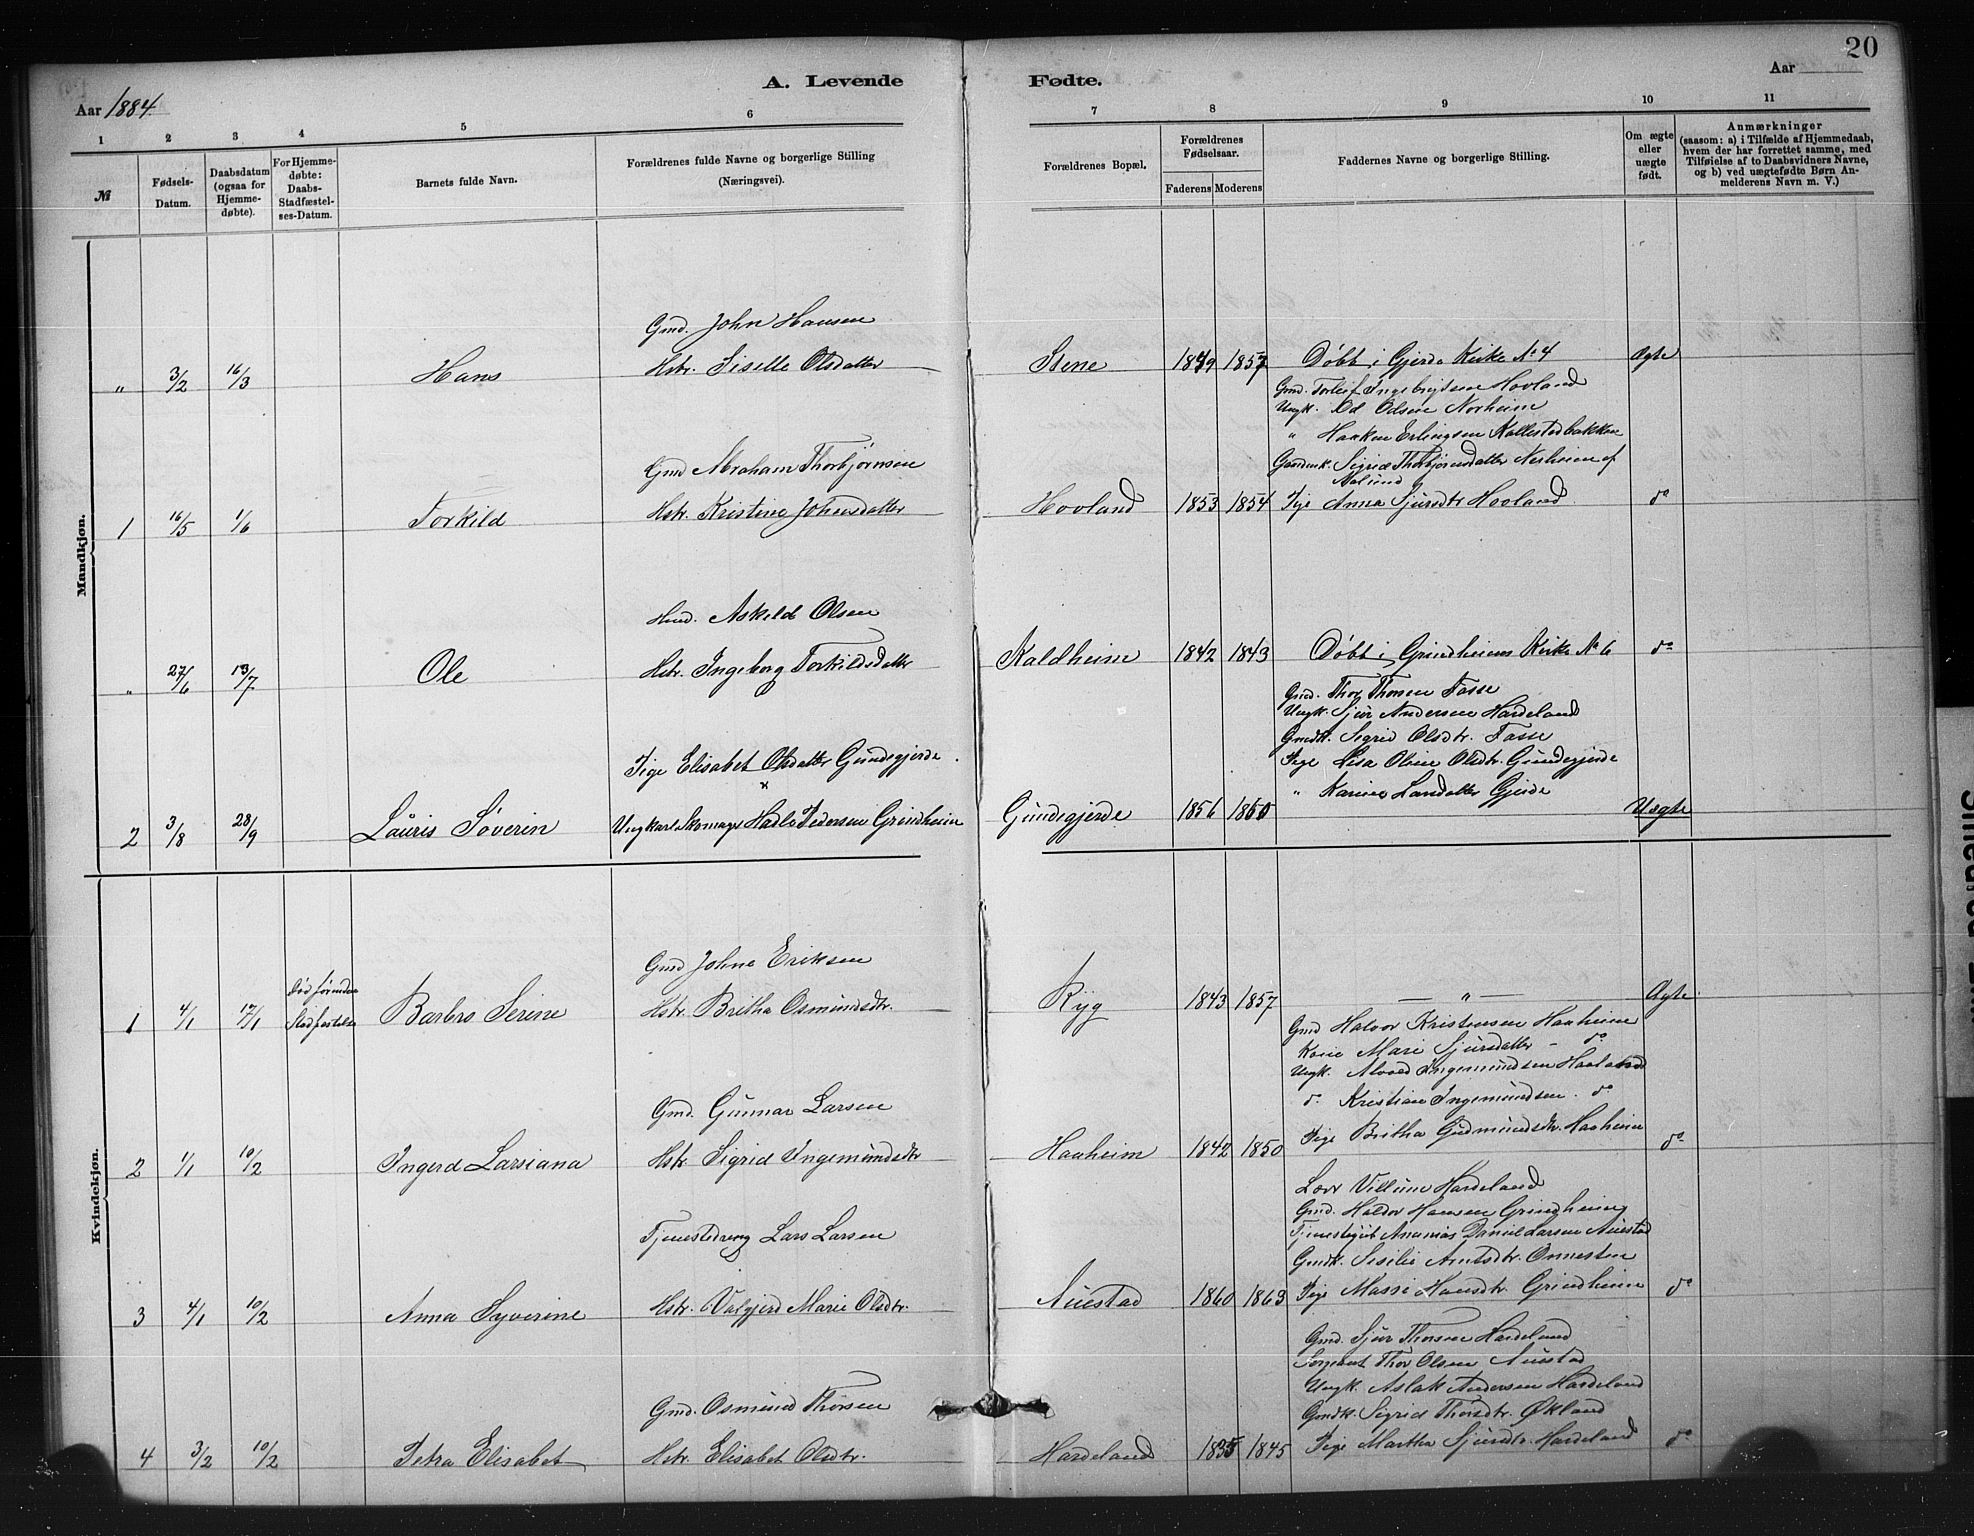 20
A. Levende Fødte.
Aar 1884. Aar
1 2 3 4 5 6 7 8 9 10 11
№
Fødsels-Datum.
Daabsdatum (ogsaa for Hjemme-døbte).
For Hjemme-døbte: Daabs-Stadfæstel-ses-Datum.
Barnets fulde Navn.
Forældrenes fulde Navne og borgerlige Stilling (Næringsvei).
Forældrenes Bopæl.
Forældrenes Fødselsaar.
Faderens Moderens
Faddernes Navne og borgerlige Stilling.
Om ægte eller uægte født.
Anmærkninger
(saasom: a) i Tilfælde af Hjemmedaab, hvem der har forrettet samme, med Tilføielse af to Daabsvidners Navne, og b) ved uægtefødte Børn An-melderens Navn m. V.)
Mandkjøn.
Gmd. John Hansen
" 3/2 16/3 Hans Hstr. Siselle Olsdatter Stene 1849 1857 Døbt i Gjerde Kirke № 4 Ægte
Gmd. Torleif Ingebrigtsen Hovland
Ungk. Od Odsen Norheim
" Haaken Erlingsen Kallestadbakken
Gmd Abraham Thorbjørnsen
Gaardmk. Sigrid Thorbjørnsdatter Nerheim af Aalund
1 16/5 1/6 Torkild Hstr. Kristine Johnsdatter Hovland 1853 1854 Pige Anna Sjursdtr Hovland do
Hmd. Askild Olsen
" 27/6 13/7 Ole Hstr. Ingeborg Torkildsdatter Kaldheim 1842 1843 Døbt i Grindheims Kirke № 6 do
Gmd. Thor Thorsen Fosse
Ungk. Sjur Andersen Hardeland
Gmdk. Sigrid Olsdtr. Fosse
Pige Elisabet Olsdatter Gundegjerde
Pige Lesa Oline Olsdtr. Gundegjerde
" Karine Larsdatter Gjerde
2 3/8 28/9 Lauris Søverin Ungkarl Skomager Hadle Pedersen Grindheim Gundegjerde 1856 1860 Uægte
Kvindekjøn.
Gmd Johne Eriksen
1 4/1 17/1 død førend Stadfæstelse Barbro Serine Hstr. Britha Osmundsdtr. Ryg 1843 1857 — " — Ægte
Gmd Halvor Kristensen Haaheim
Kone Mari Sjursdatter - do
Ungk. Alvald Ingemundsen Haaland
do Kristian Ingemundsen. do
Gmd. Gunnar Larsen
2 1/1 10/2 Ingerd Larsiana Hstr. Sigrid Ingemundsdtr Haaheim 1842 1850 Pige Britha Gudmundsdtr. Haaheim do
Lærer Villum Hardeland
Gmd. Haldor Hansen Grindheim
Tjenestegut Ananias Daniel Larsen Auestad
Gmdk. Sisilie Amtsdtr. Ormesten
Tjenestedreng Lars Larsen
3 4/1 10/2 Anna Syverine Hstr. Valgjerd Marie Olsdtr. Auestad 1860 1863 Pige Massi Hansdtr. Grindheim do
Gmd. Sjur Thorsen Hardeland
Sergeant Thor Olsen Auestad
Ungk. Aslak Andersen Hardeland
Gmdk. Sigrid Thorsdtr. Økland
Gmd. Osmund Thorsen
4 3/2 10/2 Petra Elisabet Hstr. Elisabet Olsdtr. Hardeland 1835 1845 Pige Martha Sjursdtr. Hardeland do